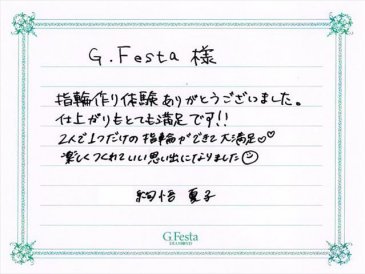 G.Festa 様
指輪作り体験ありがとうございました。
仕上がりもとても満足です!!
2人で1つだけの指輪ができて大満足♡♡
楽しくつくれていい思い出になりました☺
夏子
G.Festa
DIAMOND